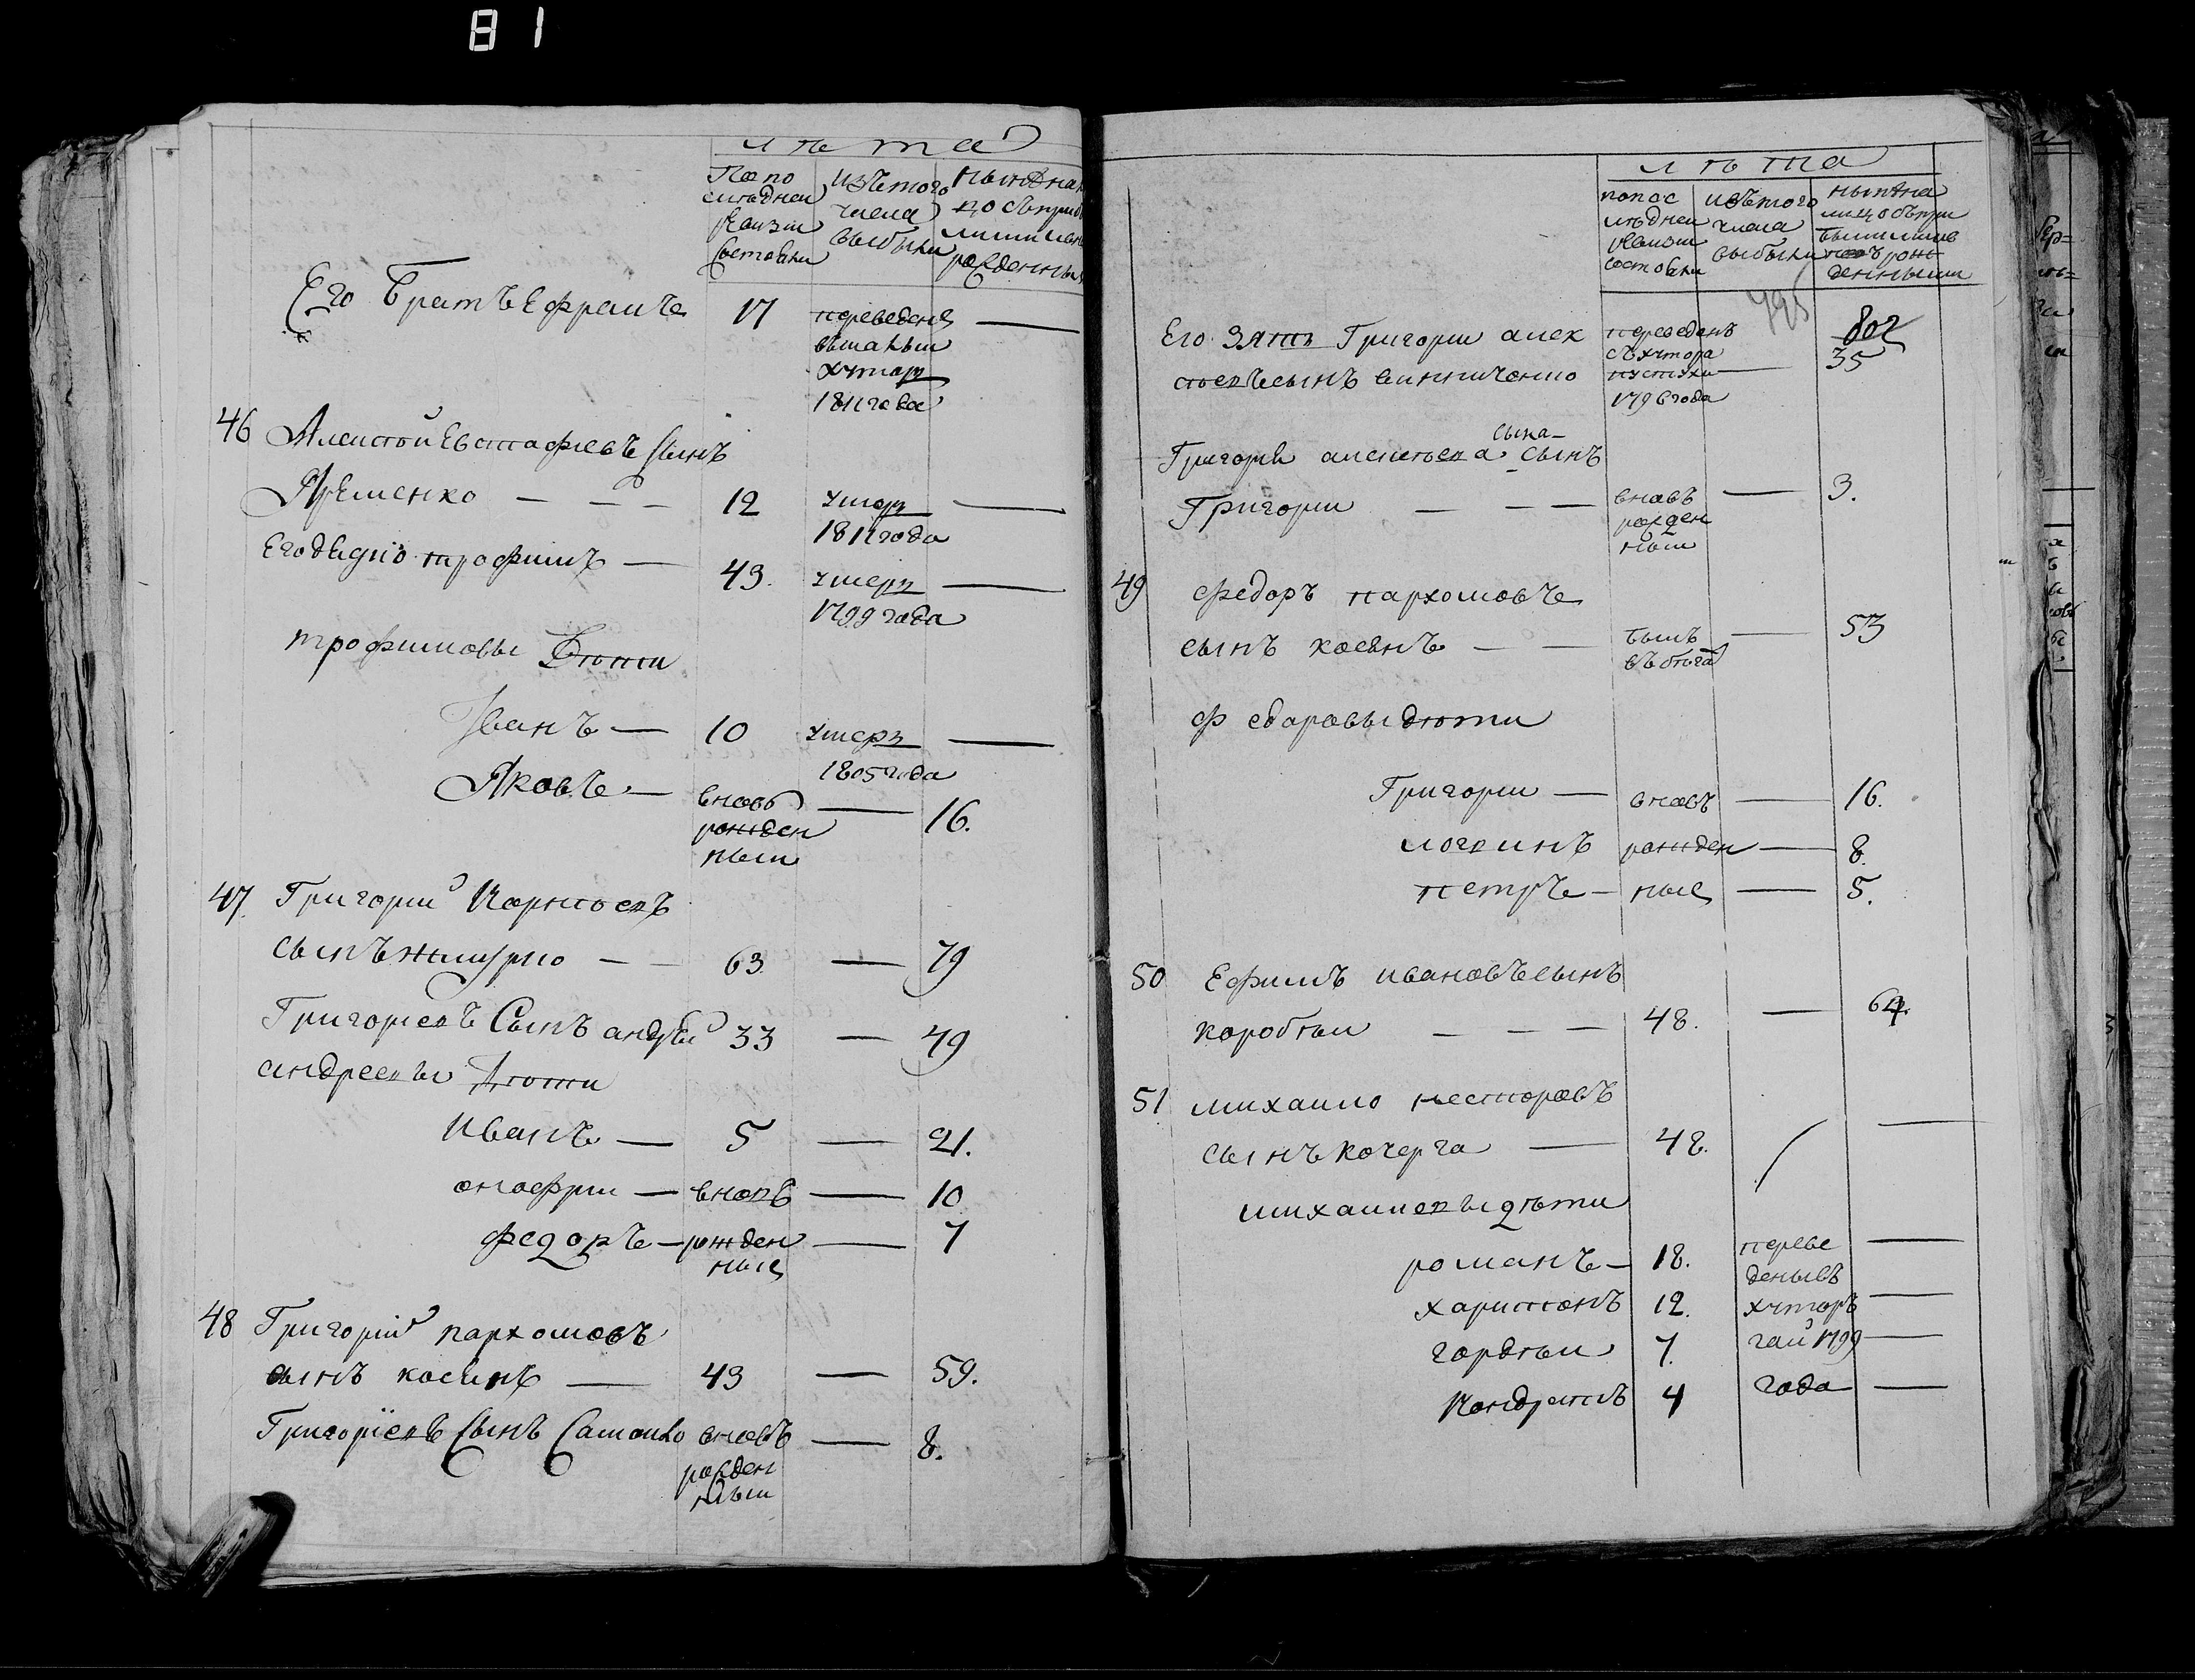 81
лѣта
По по
слѣдней
ревизіи
состояли
изъ того
числа
выбыли
Его Братъ Ефремъ
17
переведенъ
хуторъ
1811 года
46 Алексѣй Евстафіевъ сынъ
Яременко
12
умеръ
1811 года
Его дядко трофимъ
43.
умеръ
1799 года
трофимовы Дѣти
Иванъ
10
умеръ
1805 года
Яковъ
вновь
рожден
ный
16.
47. Григорий Корнѣевъ
сынъ
63.
79
Григорьевъ Сынъ андрей 33
49
андреевы Дѣти
Иванъ
5
21.
онофрий
вновь
10
федоръ
рожден
ные
7
48 Григорій пархомовъ
сынъ косенко
43
59.
Григоріевъ Сынъ Самойло
вновь
8.
рожден
ный
лѣта
попос
лѣдней
ревизии
состояли
изътого
числа
выбыли
нынѣ на
лицо съ при
795
802
Его зять Григории алек
сѣевъ сынъ винниченко
переведенъ
съ хутора
1796 года
35
сына
Григорія алексѣева сынъ
Григории
вновь
рожден
ный
3.
49 федоръ пархомовъ
сынъ
былъ
въ бѣгах
53
федаровы дѣти
Григории
вновь
16.
рожден
8.
петръ
ные
5.
50 Ефимъ ивановъ сынъ
коробки
48.
64.
51 михайло несторовъ
сынъ кочерга
48.
михаилевы дѣти
романъ
18.
переве
дены въ
харитонъ
12.
хуторъ
гордѣй
7.
гай 1799
Кондратъ
4
года